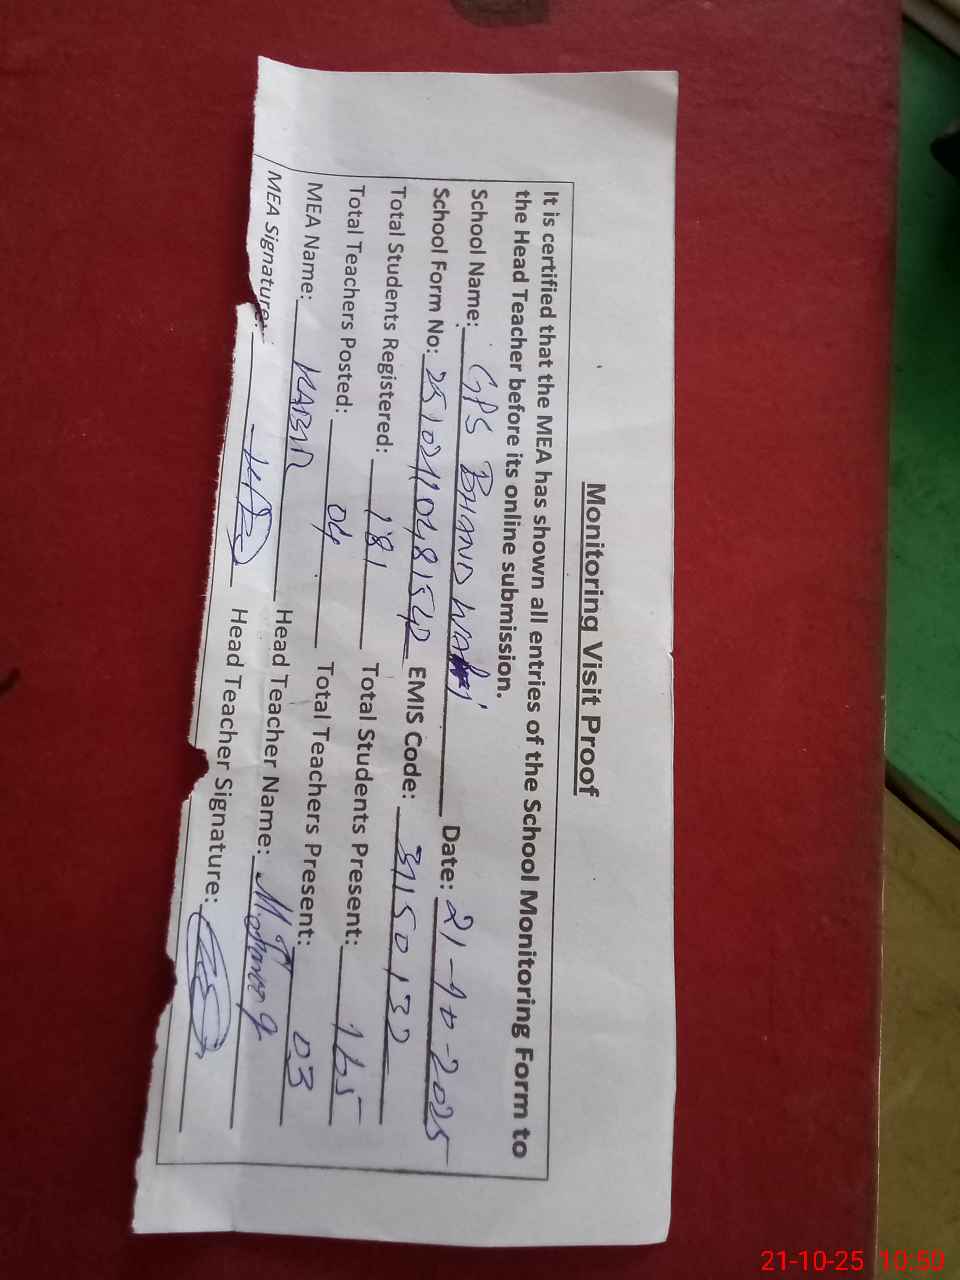 Monitoring Visit Proof
It is certified that the MEA has shown all entries of the School Monitoring Form to
the Head Teacher before its online submission.
School Name: GPS BHAND Date: 21-10-2025
School Form No: EMIS Code:
Total Students Registered: 181 Total Students Present: 165
Total Teachers Posted: 04 Total Teachers Present: 03
MEA Name: KABIR Head Teacher Name:
MEA Signature: Head Teacher Signature:
21-10-25 10:50